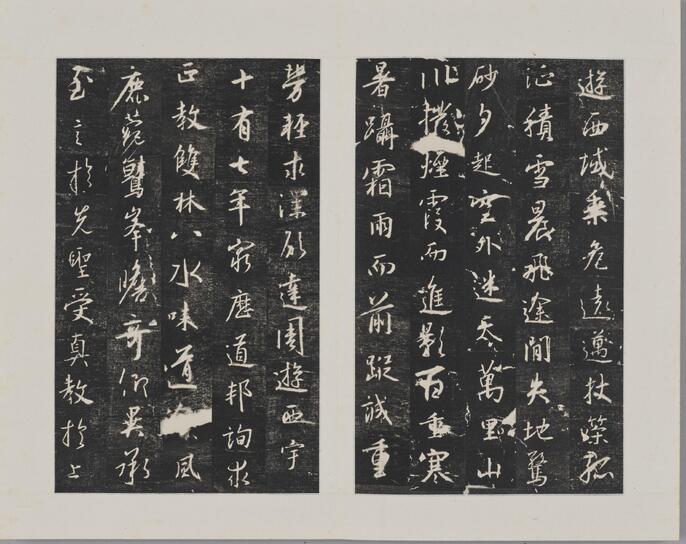 遊西域乘危遠邁杖策孤
征積雪晨飛途閒失地驚
砂夕起空外迷天萬里山
川撥煙霞而進影百重寒
暑躡霜雨而前蹤誠重
勞輕求深願達周遊西宇
十有七年窮歷道邦詢求
正教雙林八水味道 風
鹿菀鷲峯瞻奇仰異承
至言於先聖受真教於上